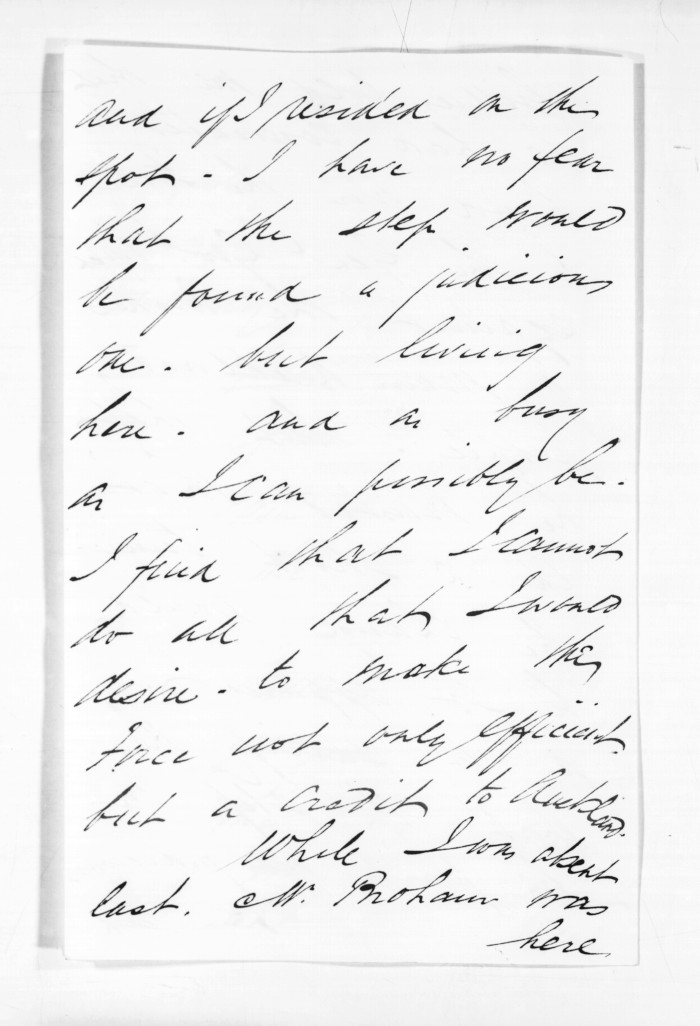 and if I resided on the
spot - I have no fear
that the step would
be found a judicious
one. but living
here. and as busy
as I can possibly be.
I find that I cannot
do all that I would
desire. to make this
Force not only efficient.
but a credit to Auckland.
While I was absent
last. Mr. was
here